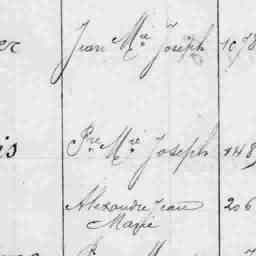 er Jean Mie Joseph
is Pre Mie Joseph
Alexandre Jean 206
Marie